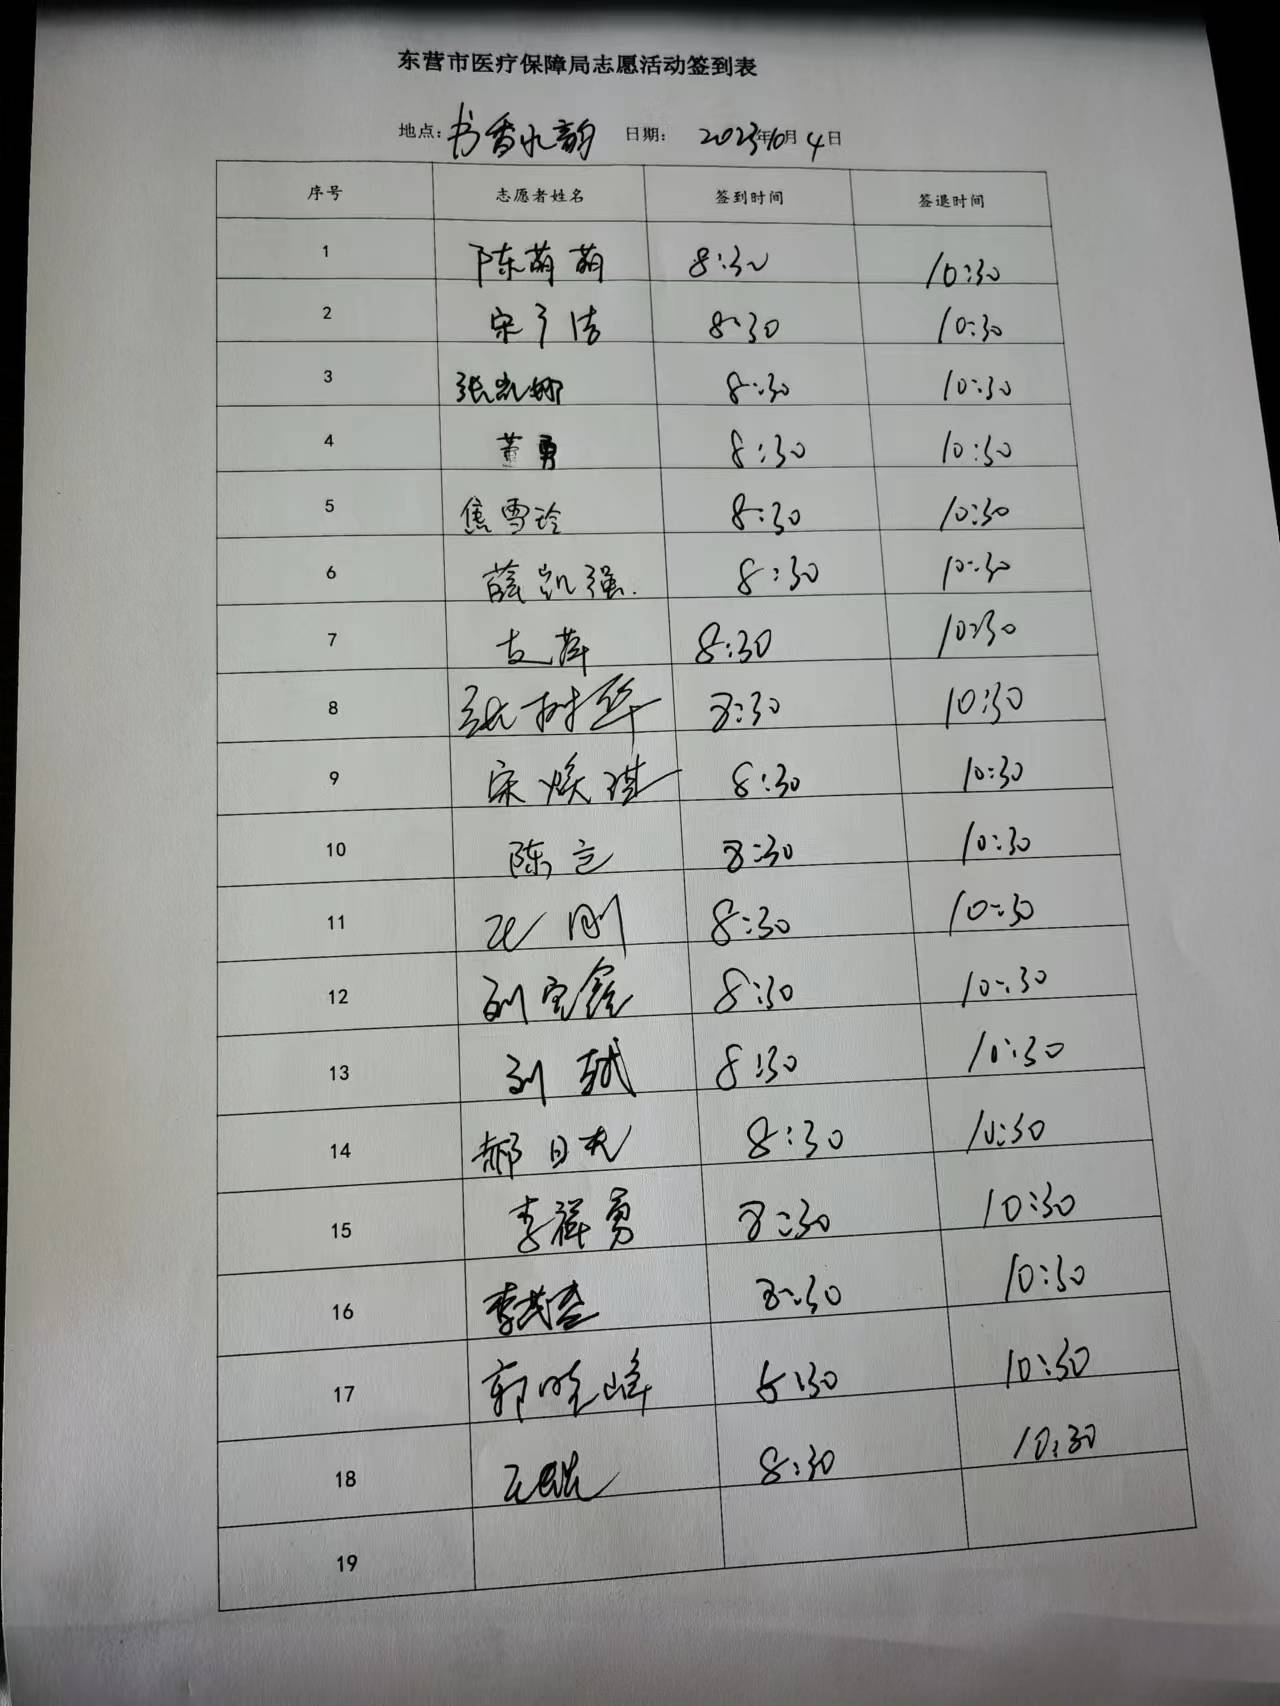 东营市医疗保障局志愿活动签到表
地点：书香水韵 日期： 2023年10月4日
序号 志愿者姓名 签到时间 签退时间
1 陈萌萌 8:30 10:30
2 宋子洁 8:30 10:30
3 张凯娜 8:30 10:30
4 董勇 8:30 10:30
5 焦雪玲 8:30 10:30
6 薛凯强 8:30 10:30
7 支萍 8:30 10:30
8 张树华 8:30 10:30
9 宋焕琪 8:30 10:30
10 陈立 8:30 10:30
11 刚 8:30 10:30
12 刘宝鑫 8:30 10:30
13 刘斌 8:30 10:30
14 郝日 8:30 10:30
15 李祥勇 8:30 10:30
16 李 8:30 10:30
17 郭晓峰 8:30 10:30
18 8:30 10:30
19